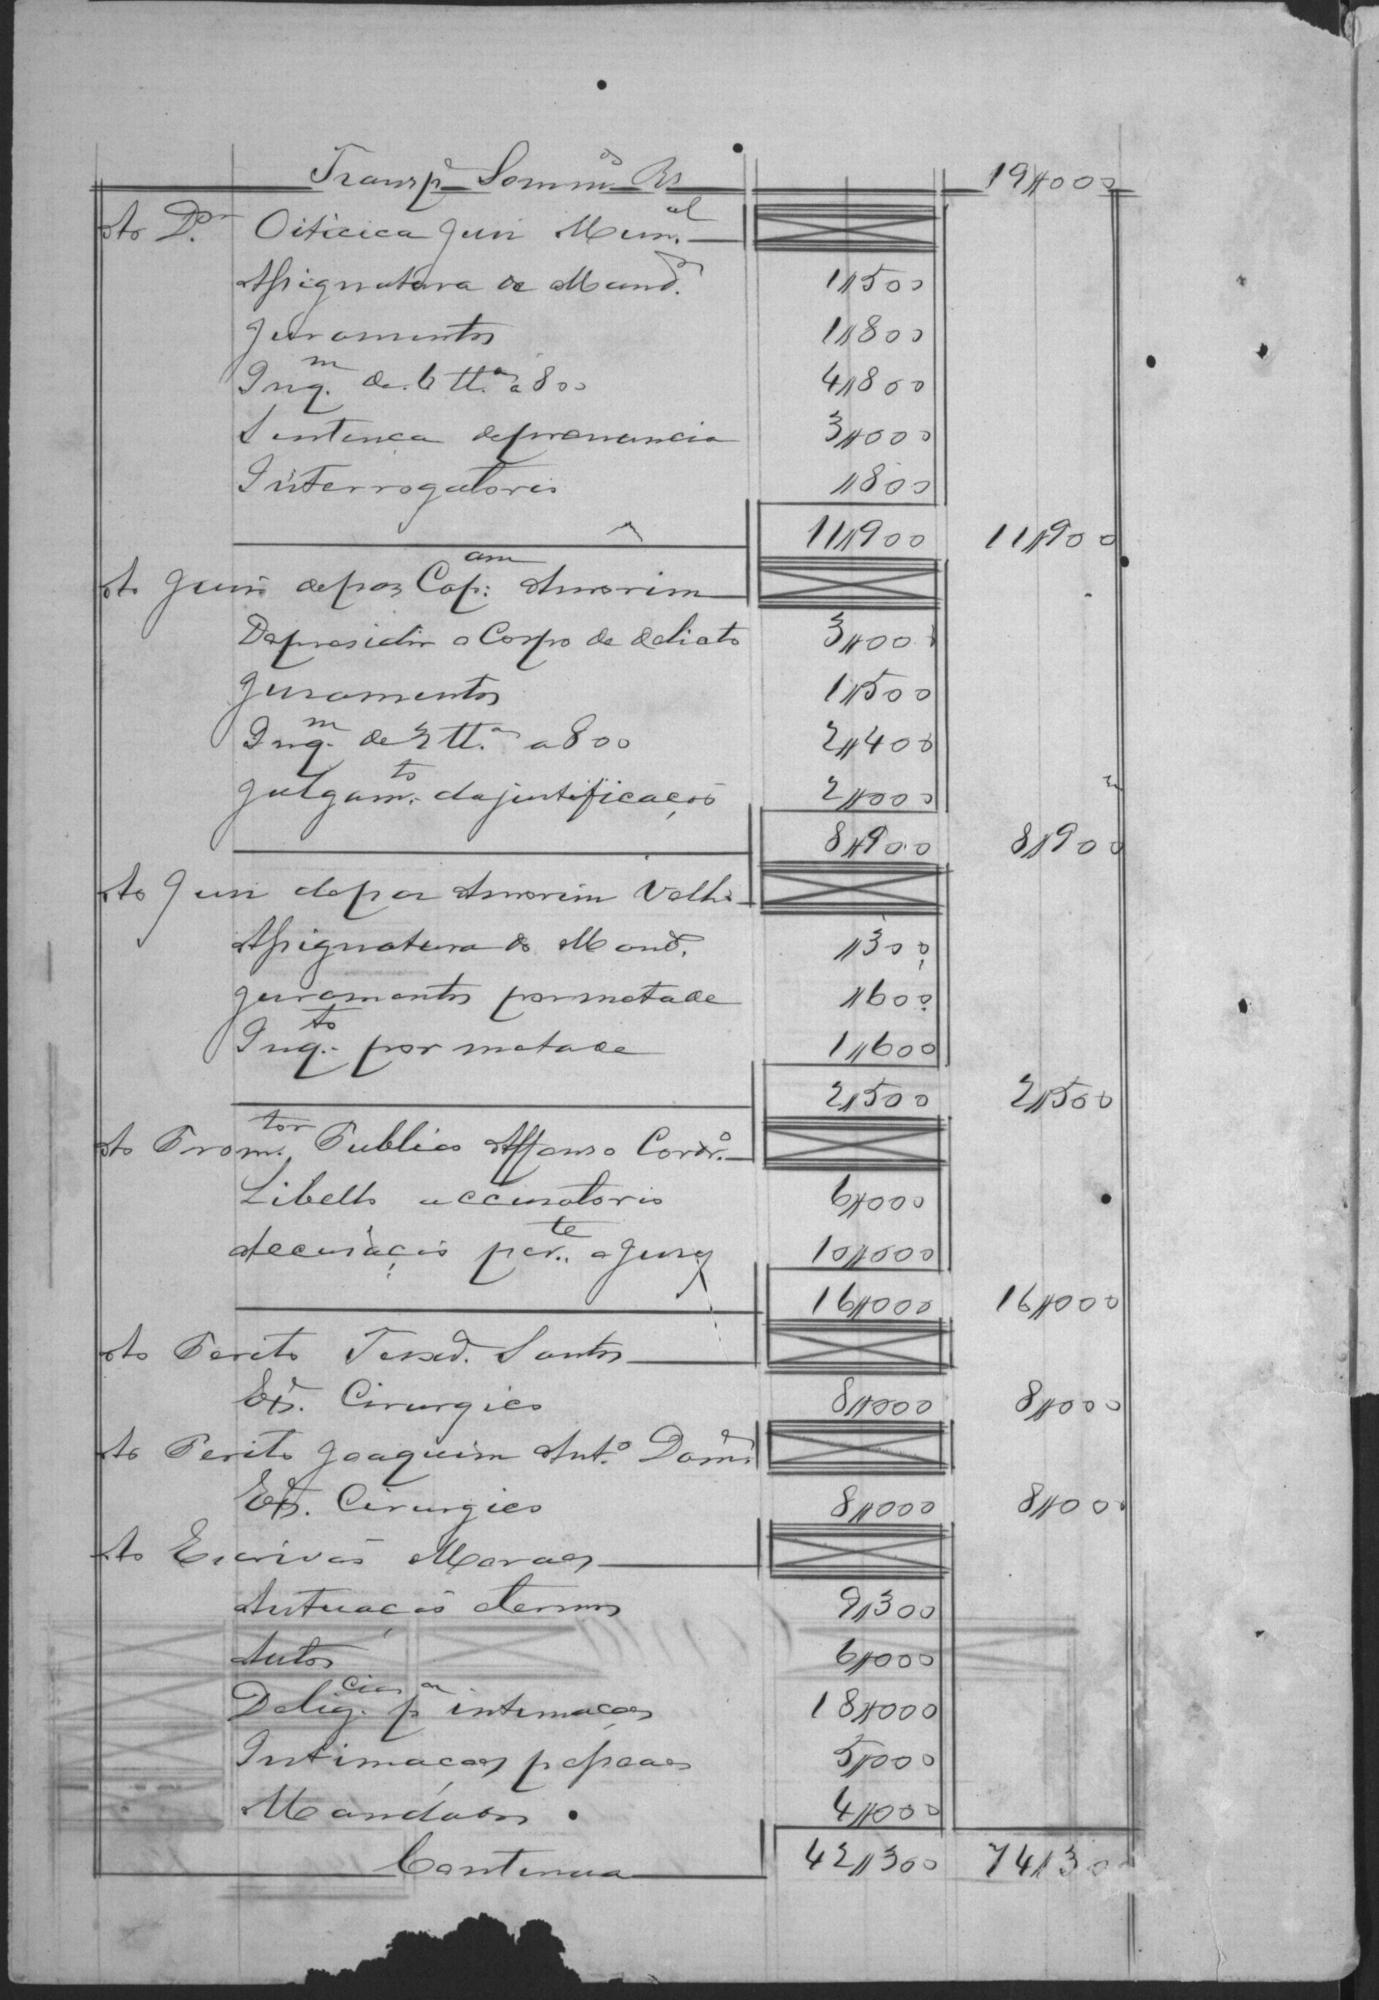 Transpe Sommas Rs 19$000
Ao Dor. Oiticica Juiz Mun.al
Assignatura de Mand.os 1$500
Juramentos 1$800
Inq.m de 6 tt.as a 800 4$800
Sentença depronuncia 3$000
Interrogatorio $800
11$900 11$900
Ao Juiz depaz Cap.am Amorim
Depresidir o Corpo de delicto 3$000
Juramentos 1$500
Inq.m de 3 tt.as a 800 2$400
Julgam.to dajustificação 2$000
8$900 8$900
Ao Juiz depaz Amorim Velho
Assignatura de Mand. $300
Juramentos pormetade $600
Inq.to por metade 1$600
2$500 2$500
Ao Prom.tor Publico Affonso Cordr.o
Libello accusatorio 6$000
Accusação per.te o Jury 10$000
16$000 16$000
Ao Perito Santos
Ex. Cirurgico 8$000 8$000
Ao Perito Joaquim Ant.o Dom.
Ex. Cirurgico 8$000 8$000
Ao Escrivão Moraes
Autuação eternos 9$300
Autos 6$000
Delig.cias pa intimações 18$000
Intimações 5$000
Mandados 4$000
Continua 42$300 74$300